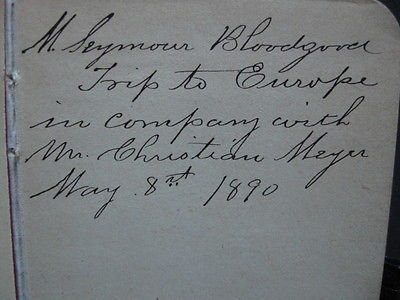 M. Seymour Bloodgood
Trip to Europe
in company with
Mr. Christian Meyer
May 8th 1890